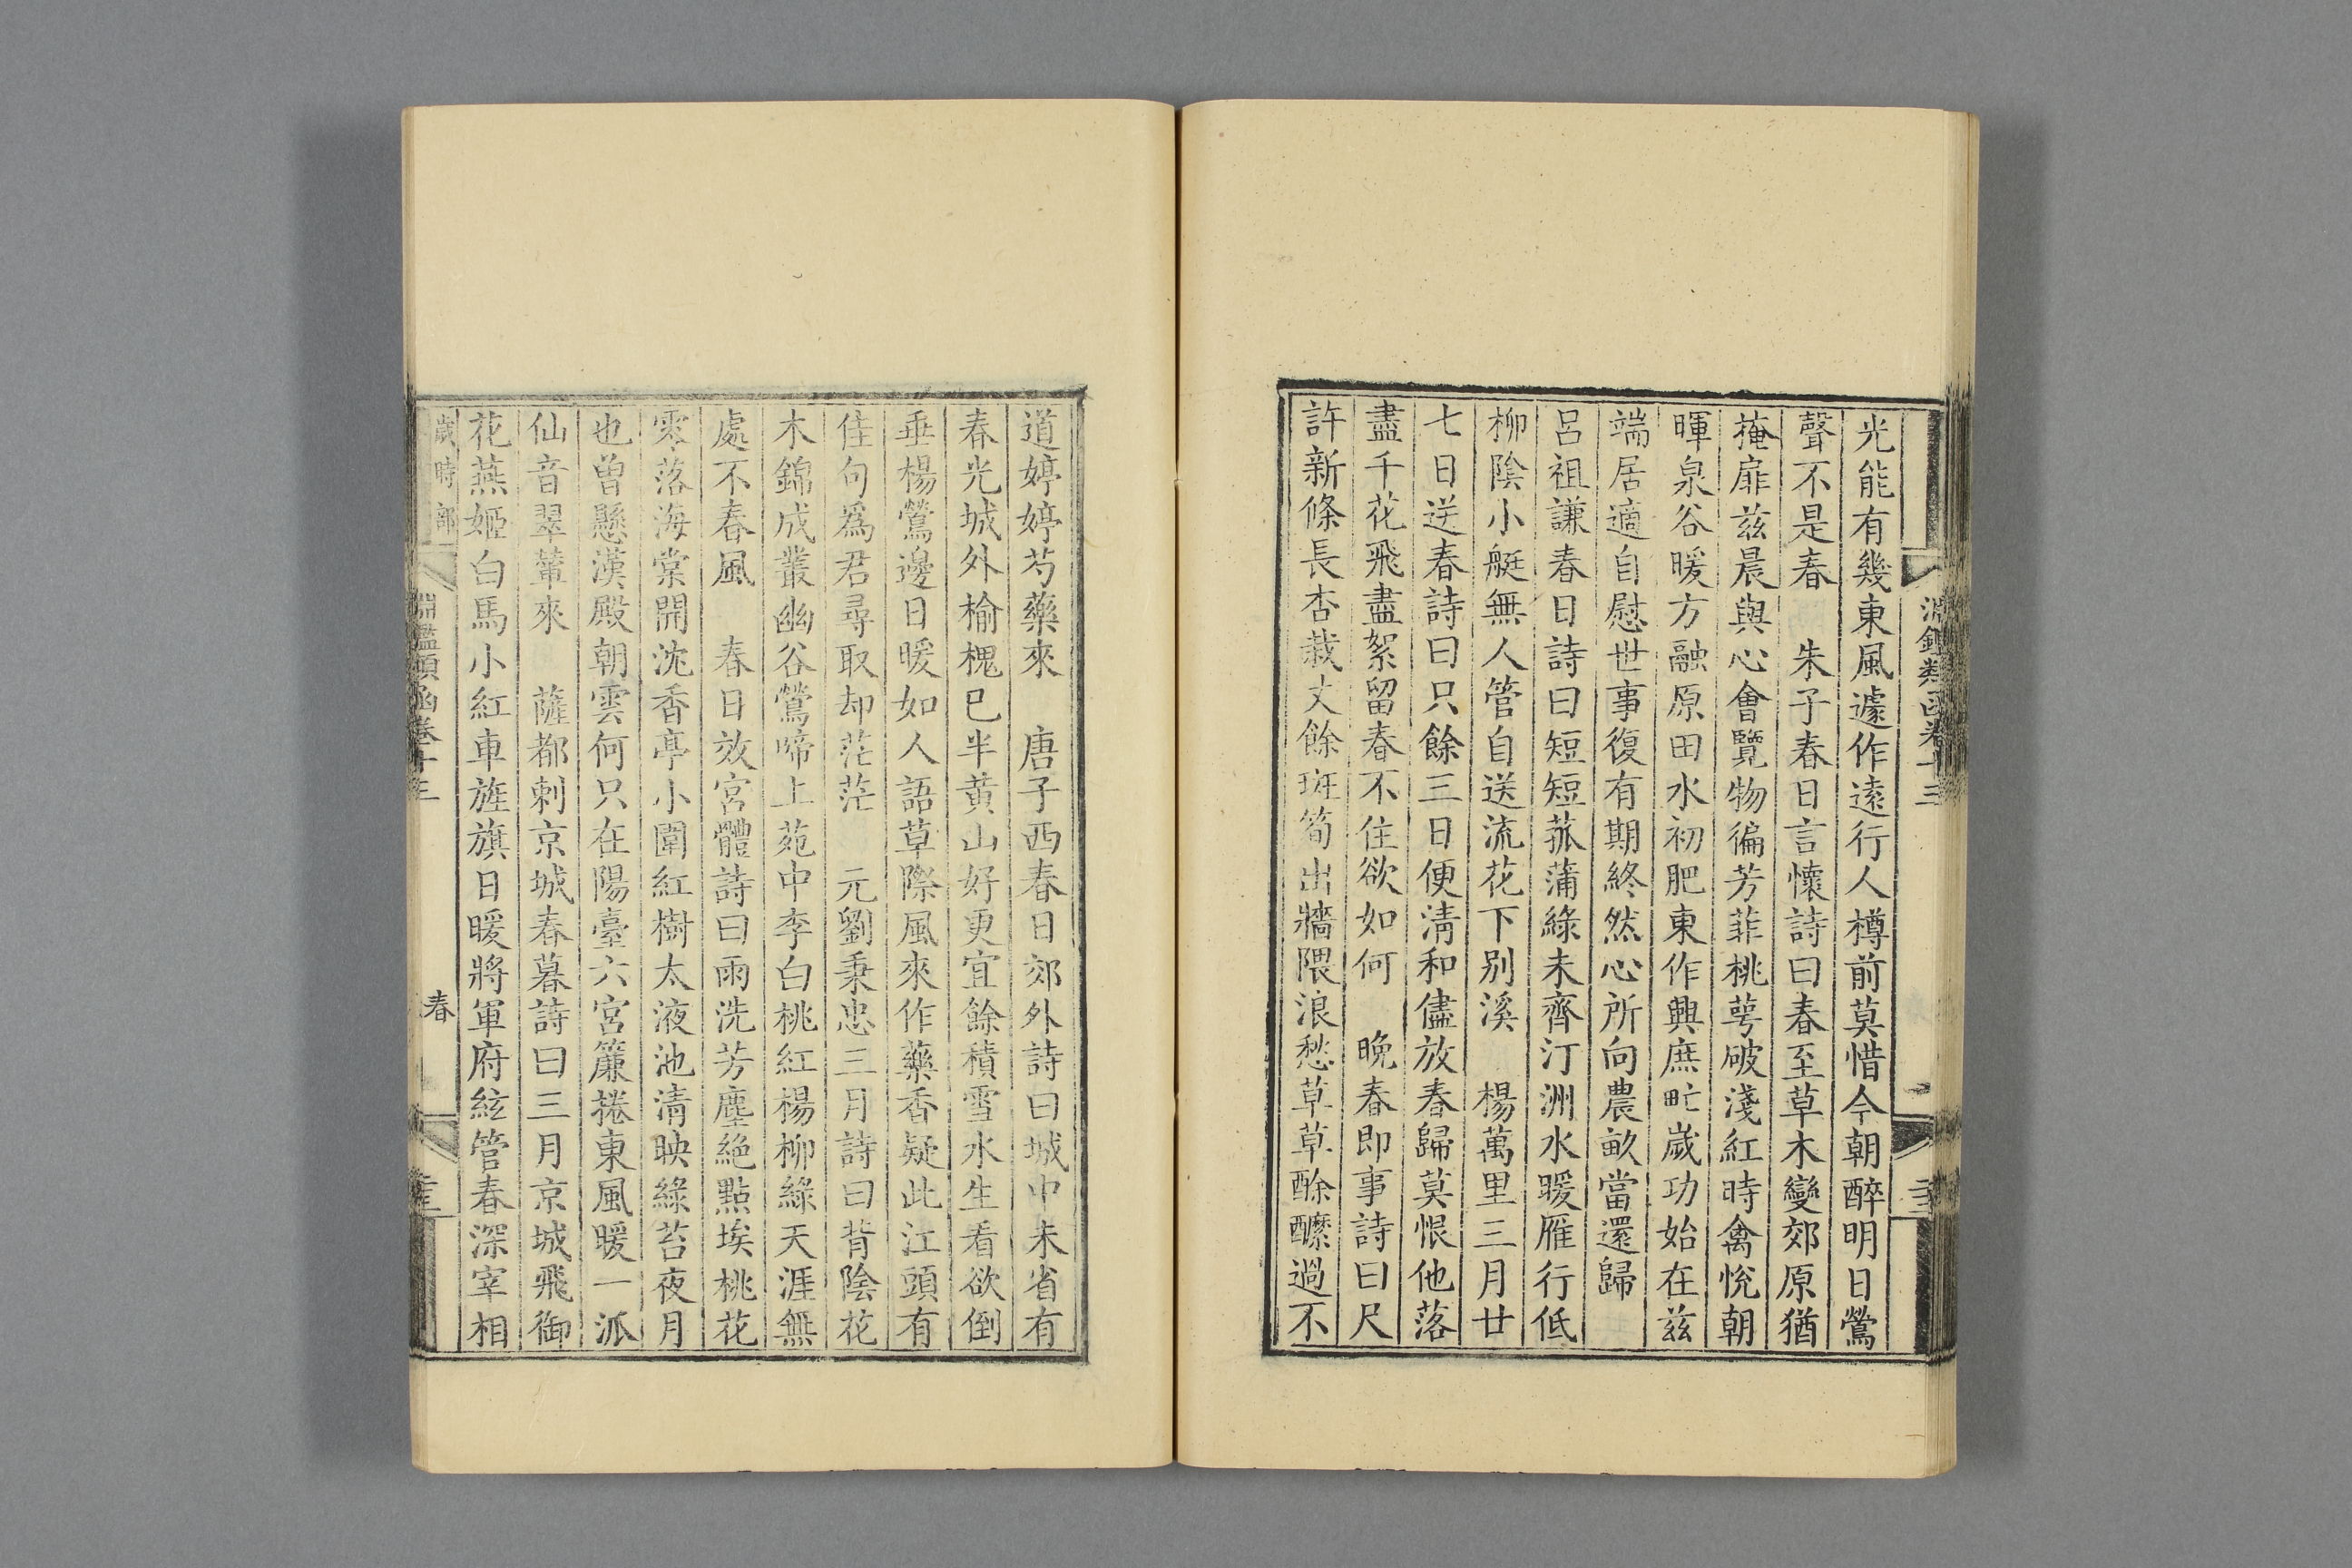 淵鑑類函卷十三
光能有幾東風遽作遠行人樽前莫惜今朝醉明日鶯
聲不是春 朱子春日言懷詩曰春至草木變郊原猶
掩扉兹晨與心會覽物徧芳菲桃萼破淺紅時禽悅朝
暉泉谷暖方融原田水初肥東作興庶甿嵗功始在兹
端居適自慰世事復有期終然心所向農畝當還歸
呂祖謙春日詩曰短短菰蒲綠未齊汀洲水暖雁行低
柳陰小艇無人管自送流花下別溪 楊萬里三月廿
七日送春詩曰只餘三日便淸和儘放春歸莫恨他落
盡千花飛盡絮留春不住欲如何 晚春即事詩曰尺
許新條長杏栽丈餘斑筍出牆隈浪愁草草酴醾過不
道婷婷芍藥來 唐子西春日郊外詩曰城中未省有
春光城外榆槐已半黃山好更宜餘積雪水生看欲倒
垂楊鶯邊日暖如人語草際風來作藥香疑此江頭有
佳句爲君尋取却茫茫 元劉秉忠三月詩曰背陰花
木錦成叢幽谷鶯啼上苑中李白桃紅楊柳綠天涯無
處不春風 春日效宮體詩曰雨洗芳塵絶點埃桃花
零落海棠開沈香亭小圍紅樹太液池淸映綠苔夜月
也曾懸漢殿朝雲何只在陽臺六宮簾捲東風暖一派
仙音翠輦來 薩都剌京城春暮詩曰三月京城飛御
花燕姬白馬小紅車旌旗日暖將軍府絃管春深宰相
歲時部 淵鑑類函卷十三 春